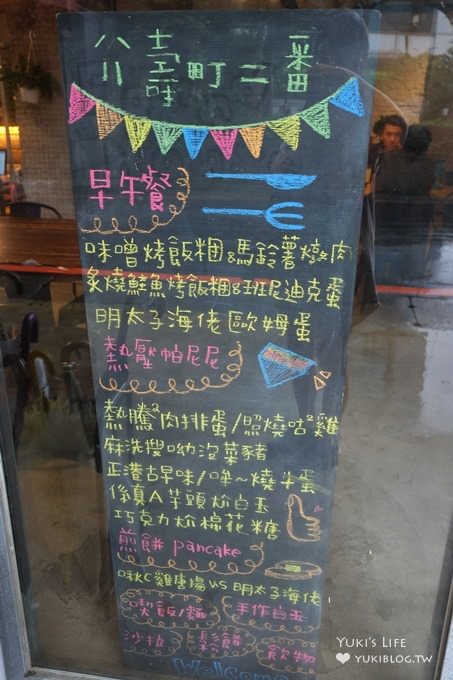 八壽町二番
早午餐
味噌烤飯糰&馬鈴薯燉肉
炙燒鮭魚烤飯糰&班尼迪克蛋
明太子海佬歐姆蛋
熱壓帕尼尼
熱騰²肉排蛋/照燒咕²雞
麻洗搜呦泡菜豬
正港古早味/哞~燒牛蛋
係真A芋頭尬白玉
巧克力尬棉花糖
煎餅 pancake
啾C雞唐揚 VS 明太子海佬
喫飯/麵 手作白玉
沙拉 鬆餅 飲物
Welcome
YUKI'S LIFE
YUKIBLOG.TW